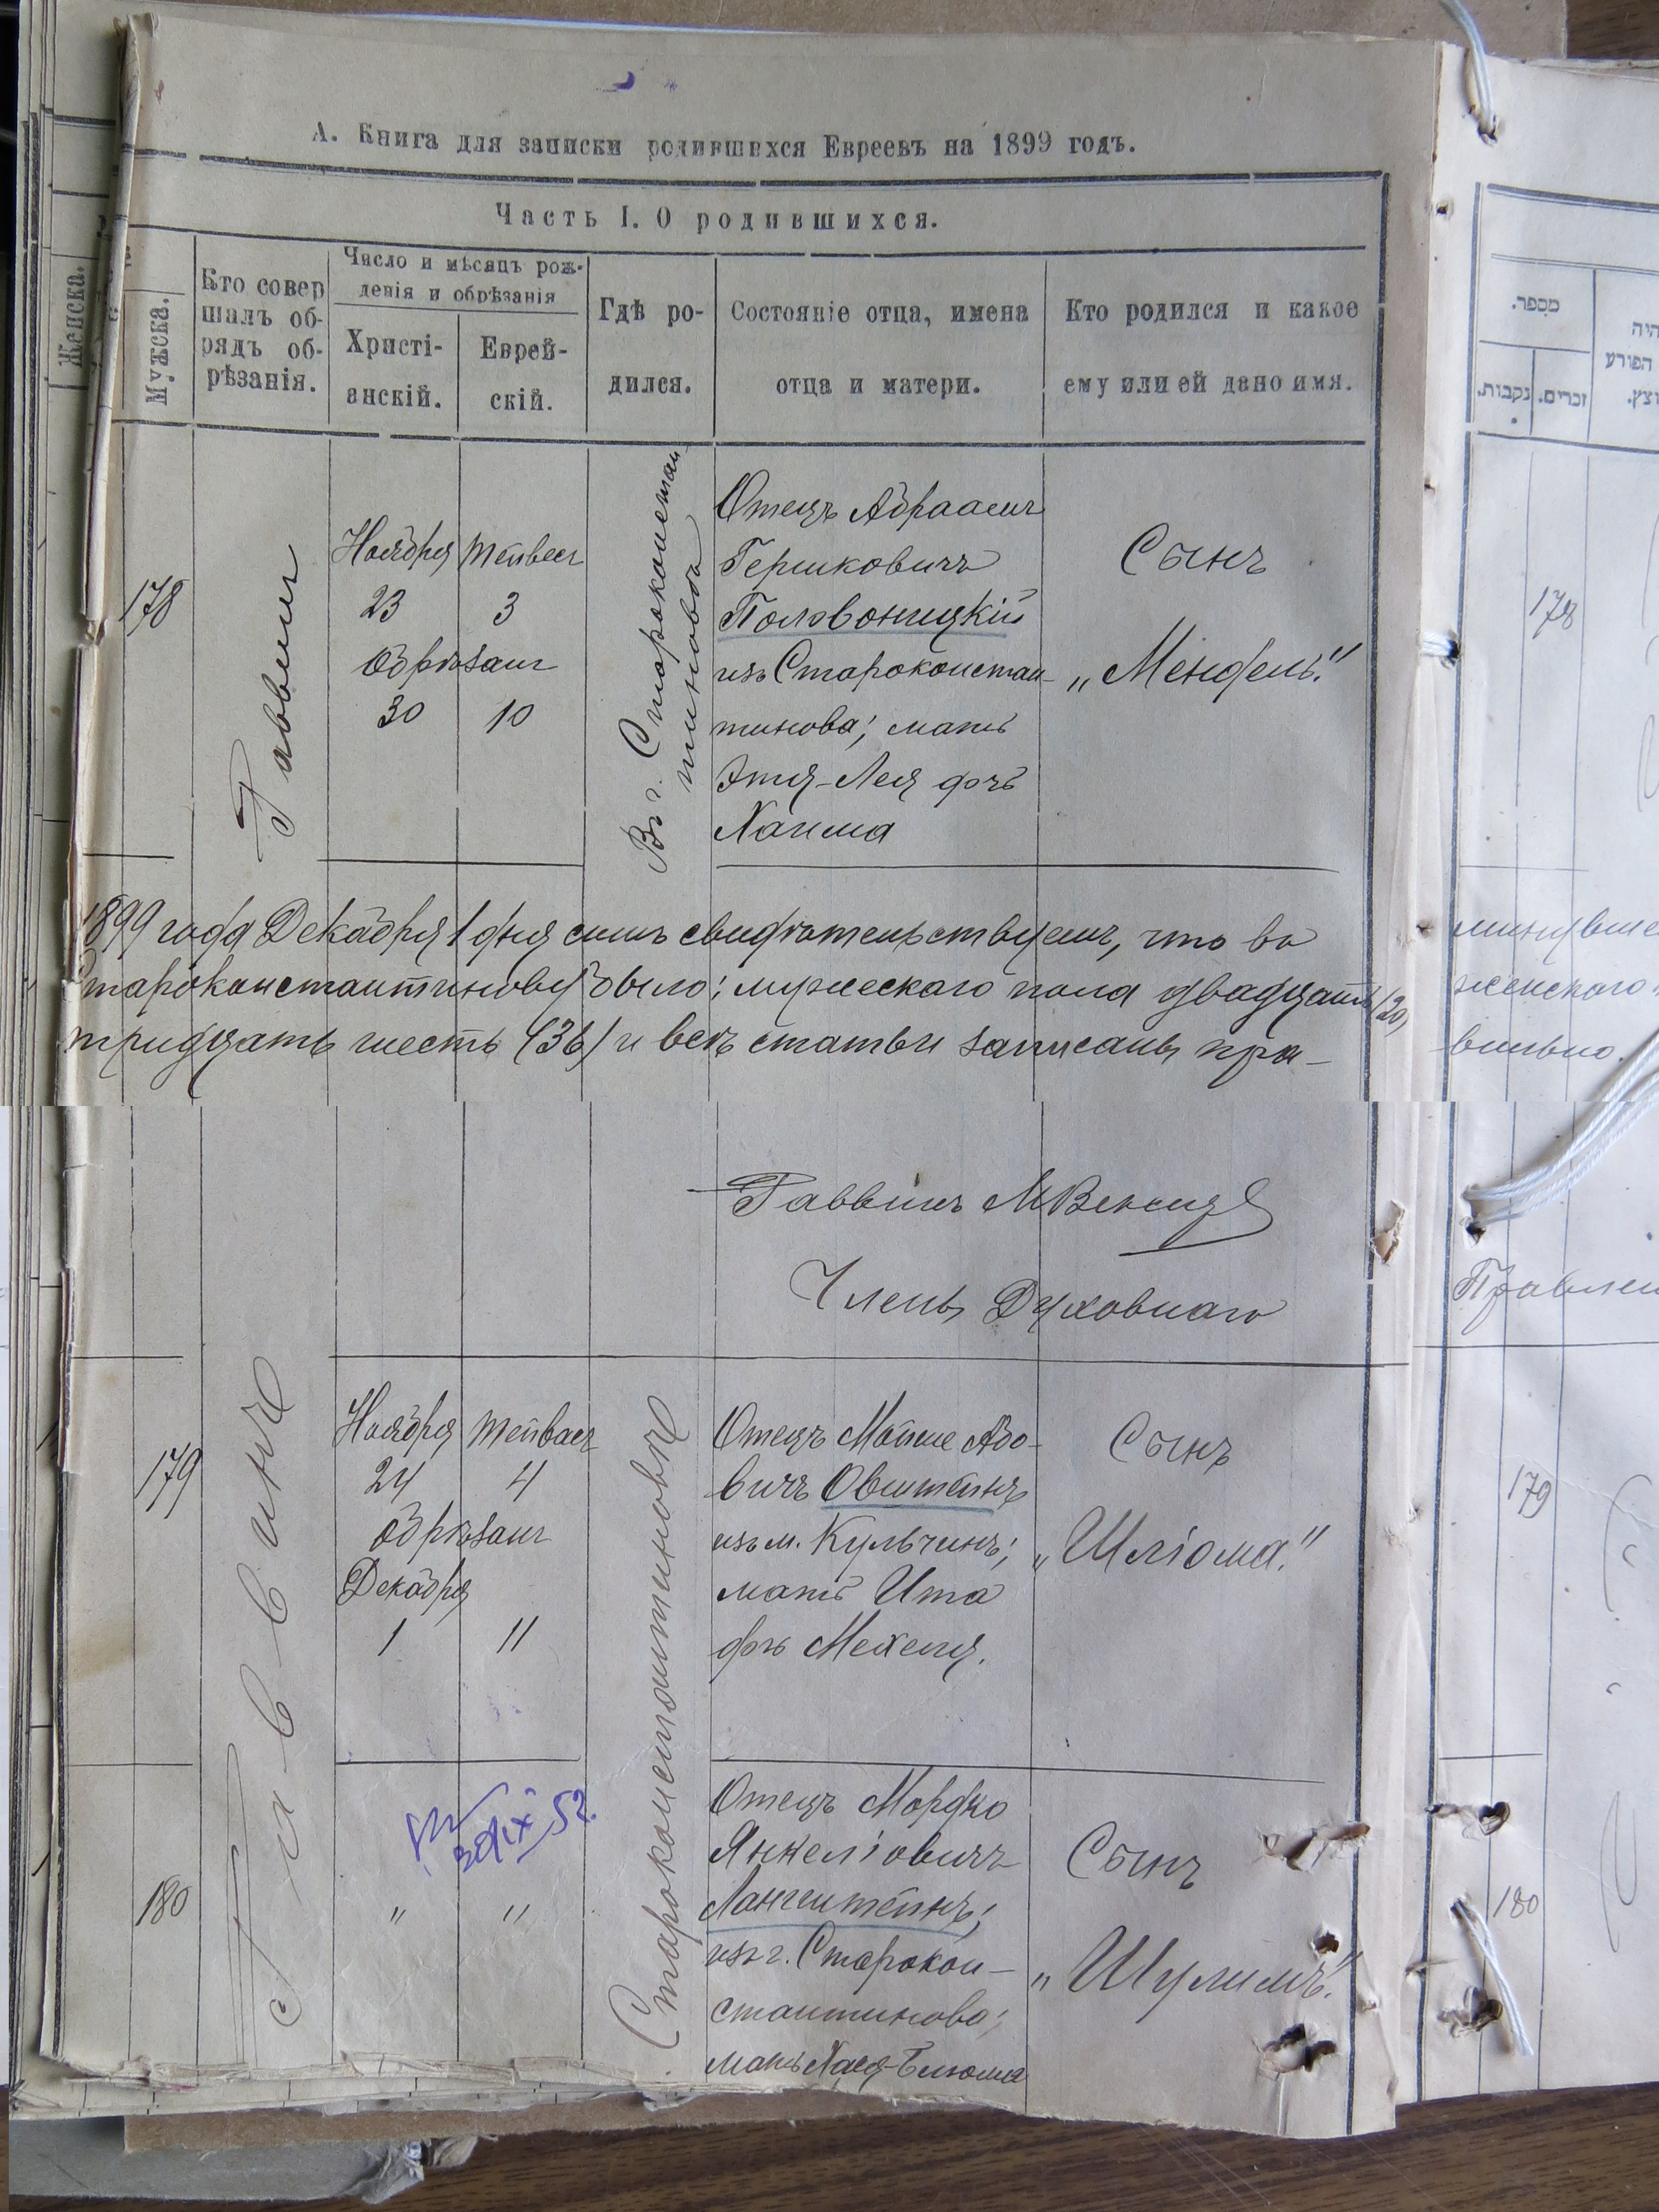 А. Книга для записки родившихся Евреевъ на 1899 годъ.
Часть I. О родившихся.
Женска.
Мужска.
Кто совер
шалъ об-
рядъ об-
рѣзанія.
Число и мѣсяцъ рож-
денія и обрѣзанія
Христі-
анскій.
Еврей-
скій.
Гдѣ ро-
дился.
Состояніе отца, имена
отца и матери.
Кто родился и какое
ему или ей дано имя.
178
Раввинъ
Ноября
23
обрѣзанъ
30
Тейвесъ
3
10
Въ г. Староконстан-
тиновѣ
Отецъ Абраамъ
Гершковичъ
Половоницкій
изъ Староконстан-
тинова; мать
Этя-Лея дочь
Хаима
Сынъ
„Мендель."
1899 года Декабря 1 дня симъ свидѣтельствуемъ, что во
Староконстантиновѣ было: мужескаго пола двадцать (20)
тридцать шесть (36) и всѣ статьи записаны пра-
Раввинъ М Венгид
Члены Духовнаго
179
Раввинъ
Ноября
24
обрѣзанъ
Декабря
1
Тейвесъ
4
11
Староконстантиновѣ
Отецъ Мойше Або-
вичъ Овштейнъ
изъ м. Кульчинъ;
мать Ита
дочь Мехеля.
Сынъ
„Шліома."
180
"
"
52.
Отецъ Мордко
Янкеліовичъ
Лангштейнъ;
изъ г. Старокон-
стантинова;
мать Хася-Блюма
Сынъ
„Шулимъ."
מספר.
נקבות.
זכרים.
היה
הפורע
178
минувше
женскаго
вильно.
Правлен
179
180